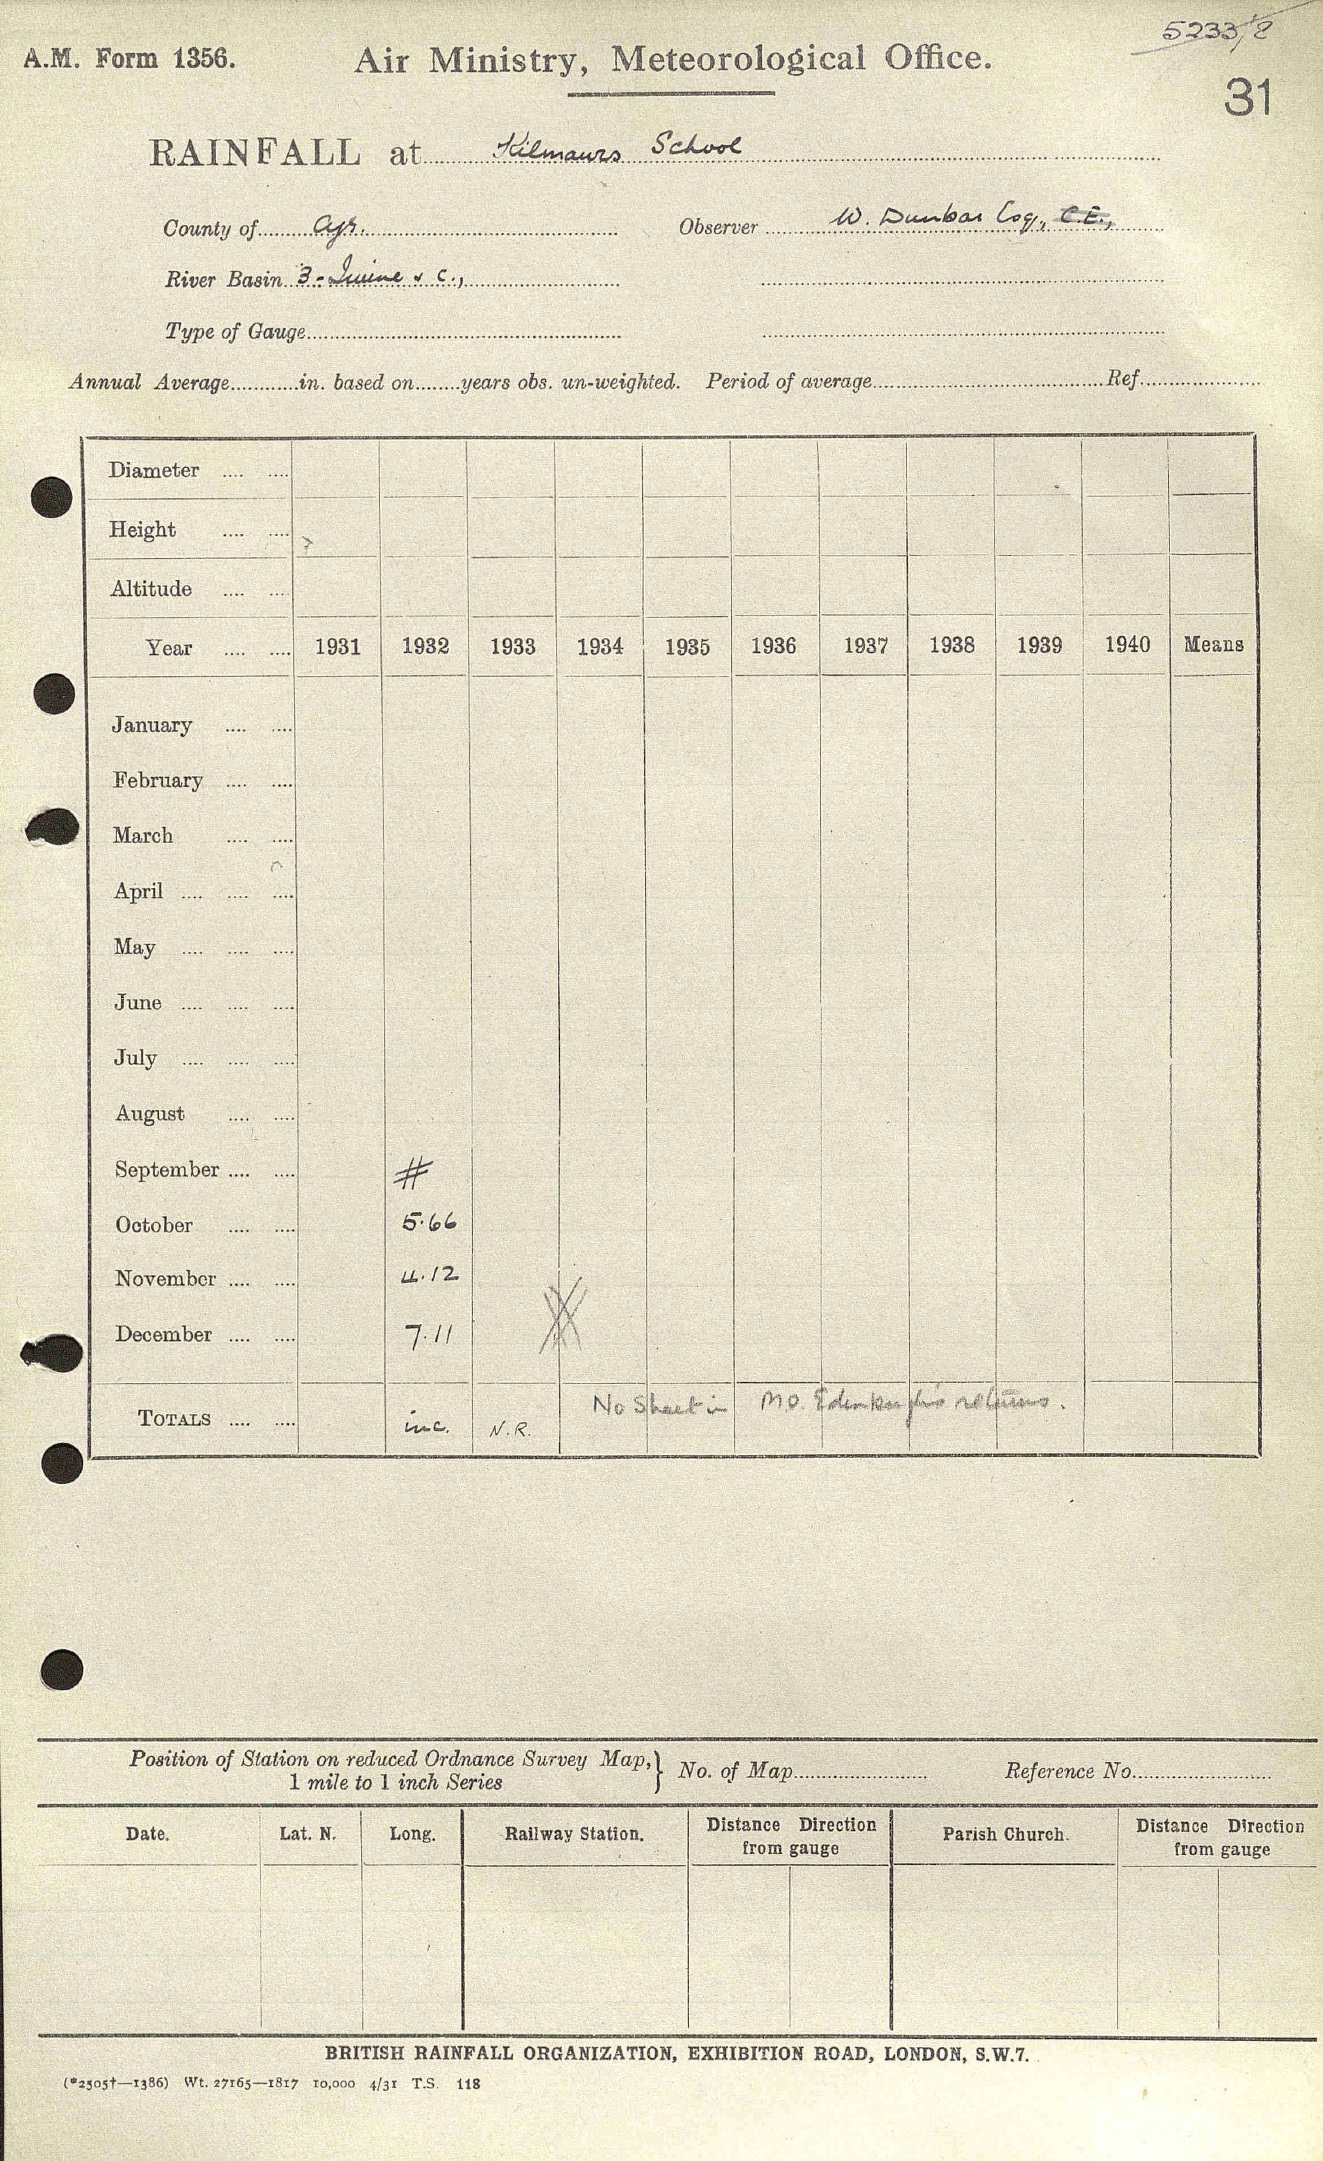 5233/2
A.M. Form 1356. Air Ministry, Meteorological Office.
31
RAINFALL at Kilmaurs School
County of Ayr. Observer W. Dunbar Esq., C.E.,
River Basin 3 - Irvine & c.,
Type of Gauge
Annual Average in. based on years obs. un-weighted. Period of average Ref.
Diameter
Height
Altitude
Year 1931 1932 1933 1934 1935 1936 1937 1938 1939 1940 Means
January
February
March
April
May
June
July
August
September #
October 5.66
November 4.12
December 7.11
TOTALS inc. N.R. No Sheet in M.O. Edinburgh's returns.
Position of Station on reduced Ordnance Survey Map, } No. of Map Reference No.
1 mile to 1 inch Series
Date. Lat. N. Long. Railway Station. Distance Direction from gauge Parish Church. Distance Direction from gauge
BRITISH RAINFALL ORGANIZATION, EXHIBITION ROAD, LONDON, S.W.7.
(*2505†—1386) Wt. 27165—1817 10,000 4/31 T.S. 118